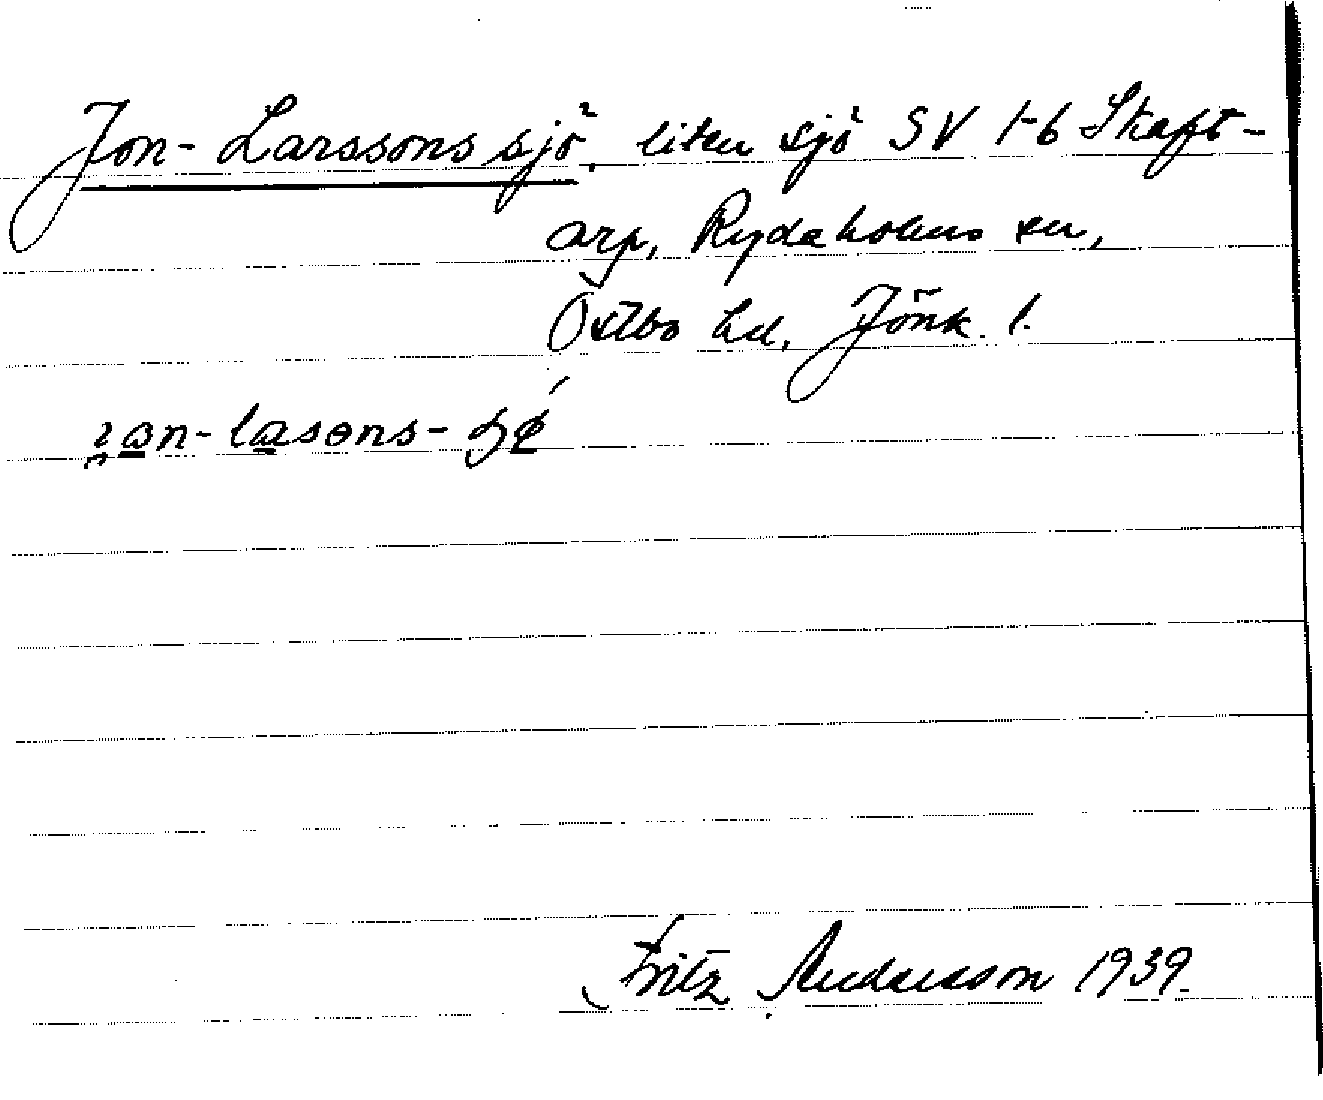 Jon-Larssons sjö, liten sjö SV 1-6 Skaft-
arp, Rydaholms sn,
Östbo hd, Jönk. l.
jon-lasɵns-
Fritz Andersson 1939.